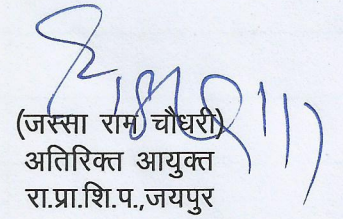 (जस्सा राम चौधरी)
अतिरिक्त आयुक्त
रा.प्रा.शि.प.,जयपुर